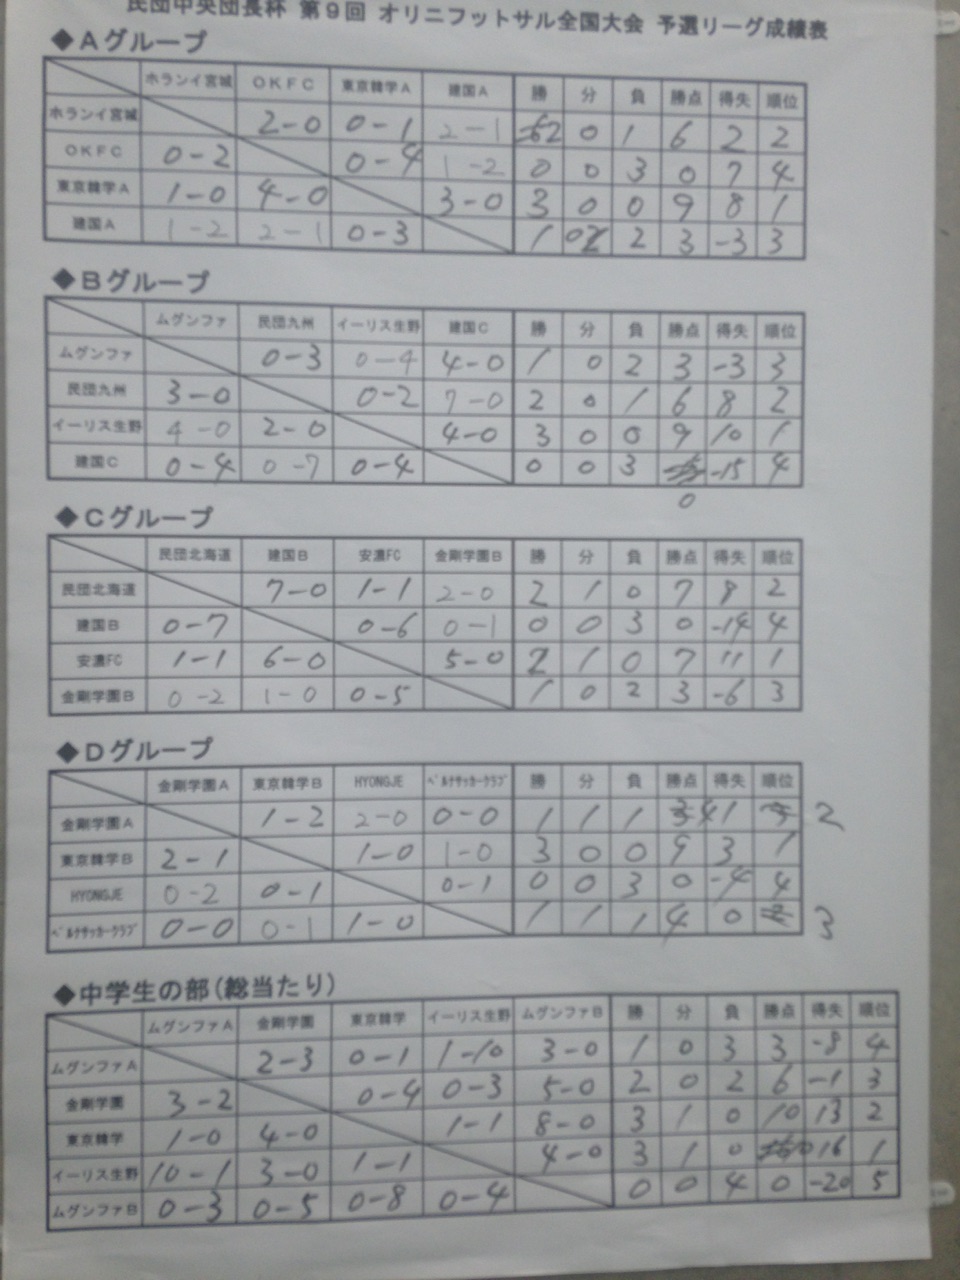 民団中央団長杯 第9回 オリニフットサル全国大会 予選リーグ成績表
◆Aグループ
ホランイ宮城 OKFC 東京韓学A 建国A 勝 分 負 勝点 得失 順位
ホランイ宮城 2-0 0-1 2-1 2 0 1 6 2 2
OKFC 0-2 0-4 1-2 0 0 3 0 7 4
東京韓学A 1-0 4-0 3-0 3 0 0 9 8 1
建国A 1-2 2-1 0-3 1 0 2 3 -3 3
◆Bグループ
ムグンファ 民団九州 イーリス生野 建国C 勝 分 負 勝点 得失 順位
ムグンファ 0-3 0-4 4-0 1 0 2 3 -3 3
民団九州 3-0 0-2 7-0 2 0 1 6 8 2
イーリス生野 4-0 2-0 4-0 3 0 0 9 10 1
建国C 0-4 0-7 0-4 0 0 3 -15 4
0
◆Cグループ
民団北海道 建国B 安濃FC 金剛学園B 勝 分 負 勝点 得失 順位
民団北海道 7-0 1-1 2-0 2 1 0 7 8 2
建国B 0-7 0-6 0-1 0 0 3 0 -14 4
安濃FC 1-1 6-0 5-0 2 1 0 7 11 1
金剛学園B 0-2 1-0 0-5 1 0 2 3 -6 3
◆Dグループ
金剛学園A 東京韓学B HYONGJE ベルナサッカークラブ 勝 分 負 勝点 得失 順位
金剛学園A 1-2 2-0 0-0 1 1 1 4 1 2
東京韓学B 2-1 1-0 1-0 3 0 0 9 3 1
HYONGJE 0-2 0-1 0-1 0 0 3 0 -4 4
ベルナサッカークラブ 0-0 0-1 1-0 1 1 1 4 0 3
◆中学生の部(総当たり)
ムグンファA 金剛学園 東京韓学 イーリス生野 ムグンファB 勝 分 負 勝点 得失 順位
ムグンファA 2-3 0-1 1-10 3-0 1 0 3 3 -8 4
金剛学園 3-2 0-4 0-3 5-0 2 0 2 6 -1 3
東京韓学 1-0 4-0 1-1 8-0 3 1 0 10 13 2
イーリス生野 10-1 3-0 1-1 4-0 3 1 0 10 16 1
ムグンファB 0-3 0-5 0-8 0-4 0 0 4 0 -20 5